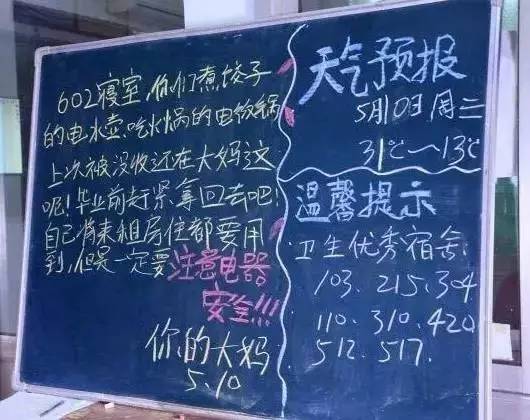 602寝室,你们煮饺子
的电水壶,吃火锅的电饭锅
上次被没收还在大妈这
呢!毕业前赶紧拿回去吧!
自己将来租房住都要用
到,但是一定要注意电器
安全!!!
你的大妈
5.10
天气预报
5月10日 周三
31℃~13℃
温馨提示
卫生优秀宿舍
103.215.304
110.310.420
512.517.